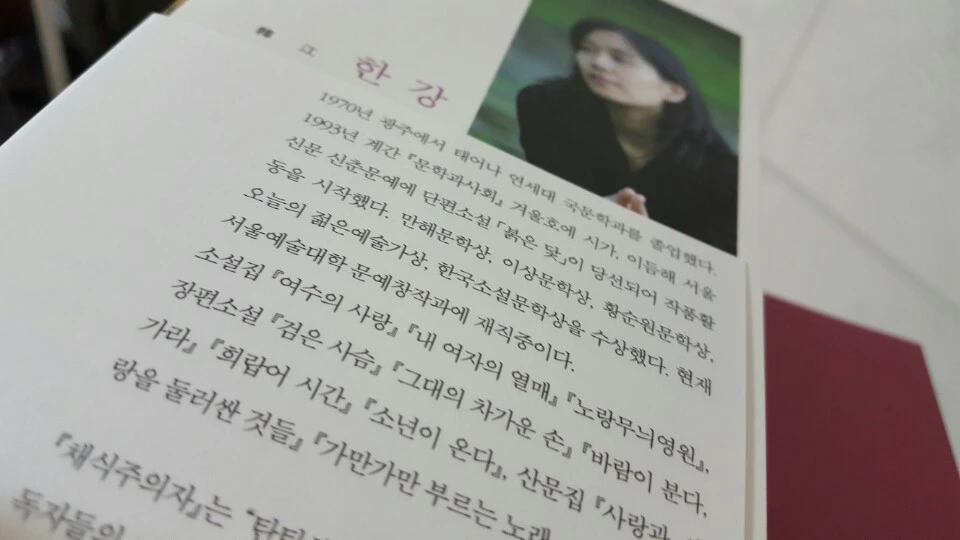 韓 江
한 강
1970년 광주에서 태어나 연세대 국문학과를 졸업했다.
1993년 계간 『문학과사회』 겨울호에 시가, 이듬해 서울
신문 신춘문예에 단편소설 「붉은 닻」이 당선되어 작품활
동을 시작했다. 만해문학상, 이상문학상, 황순원문학상,
오늘의 젊은예술가상, 한국소설문학상을 수상했다. 현재
서울예술대학 문예창작과에 재직중이다.
소설집 『여수의 사랑』 『내 여자의 열매』 『노랑무늬영원』,
장편소설 『검은 사슴』 『그대의 차가운 손』 『바람이 분다,
가라』 『희랍어 시간』 『소년이 온다』, 산문집 『사랑과, 사
랑을 둘러싼 것들』 『가만가만 부르는 노래
『채식주의자』는 "탄탄
독자들의